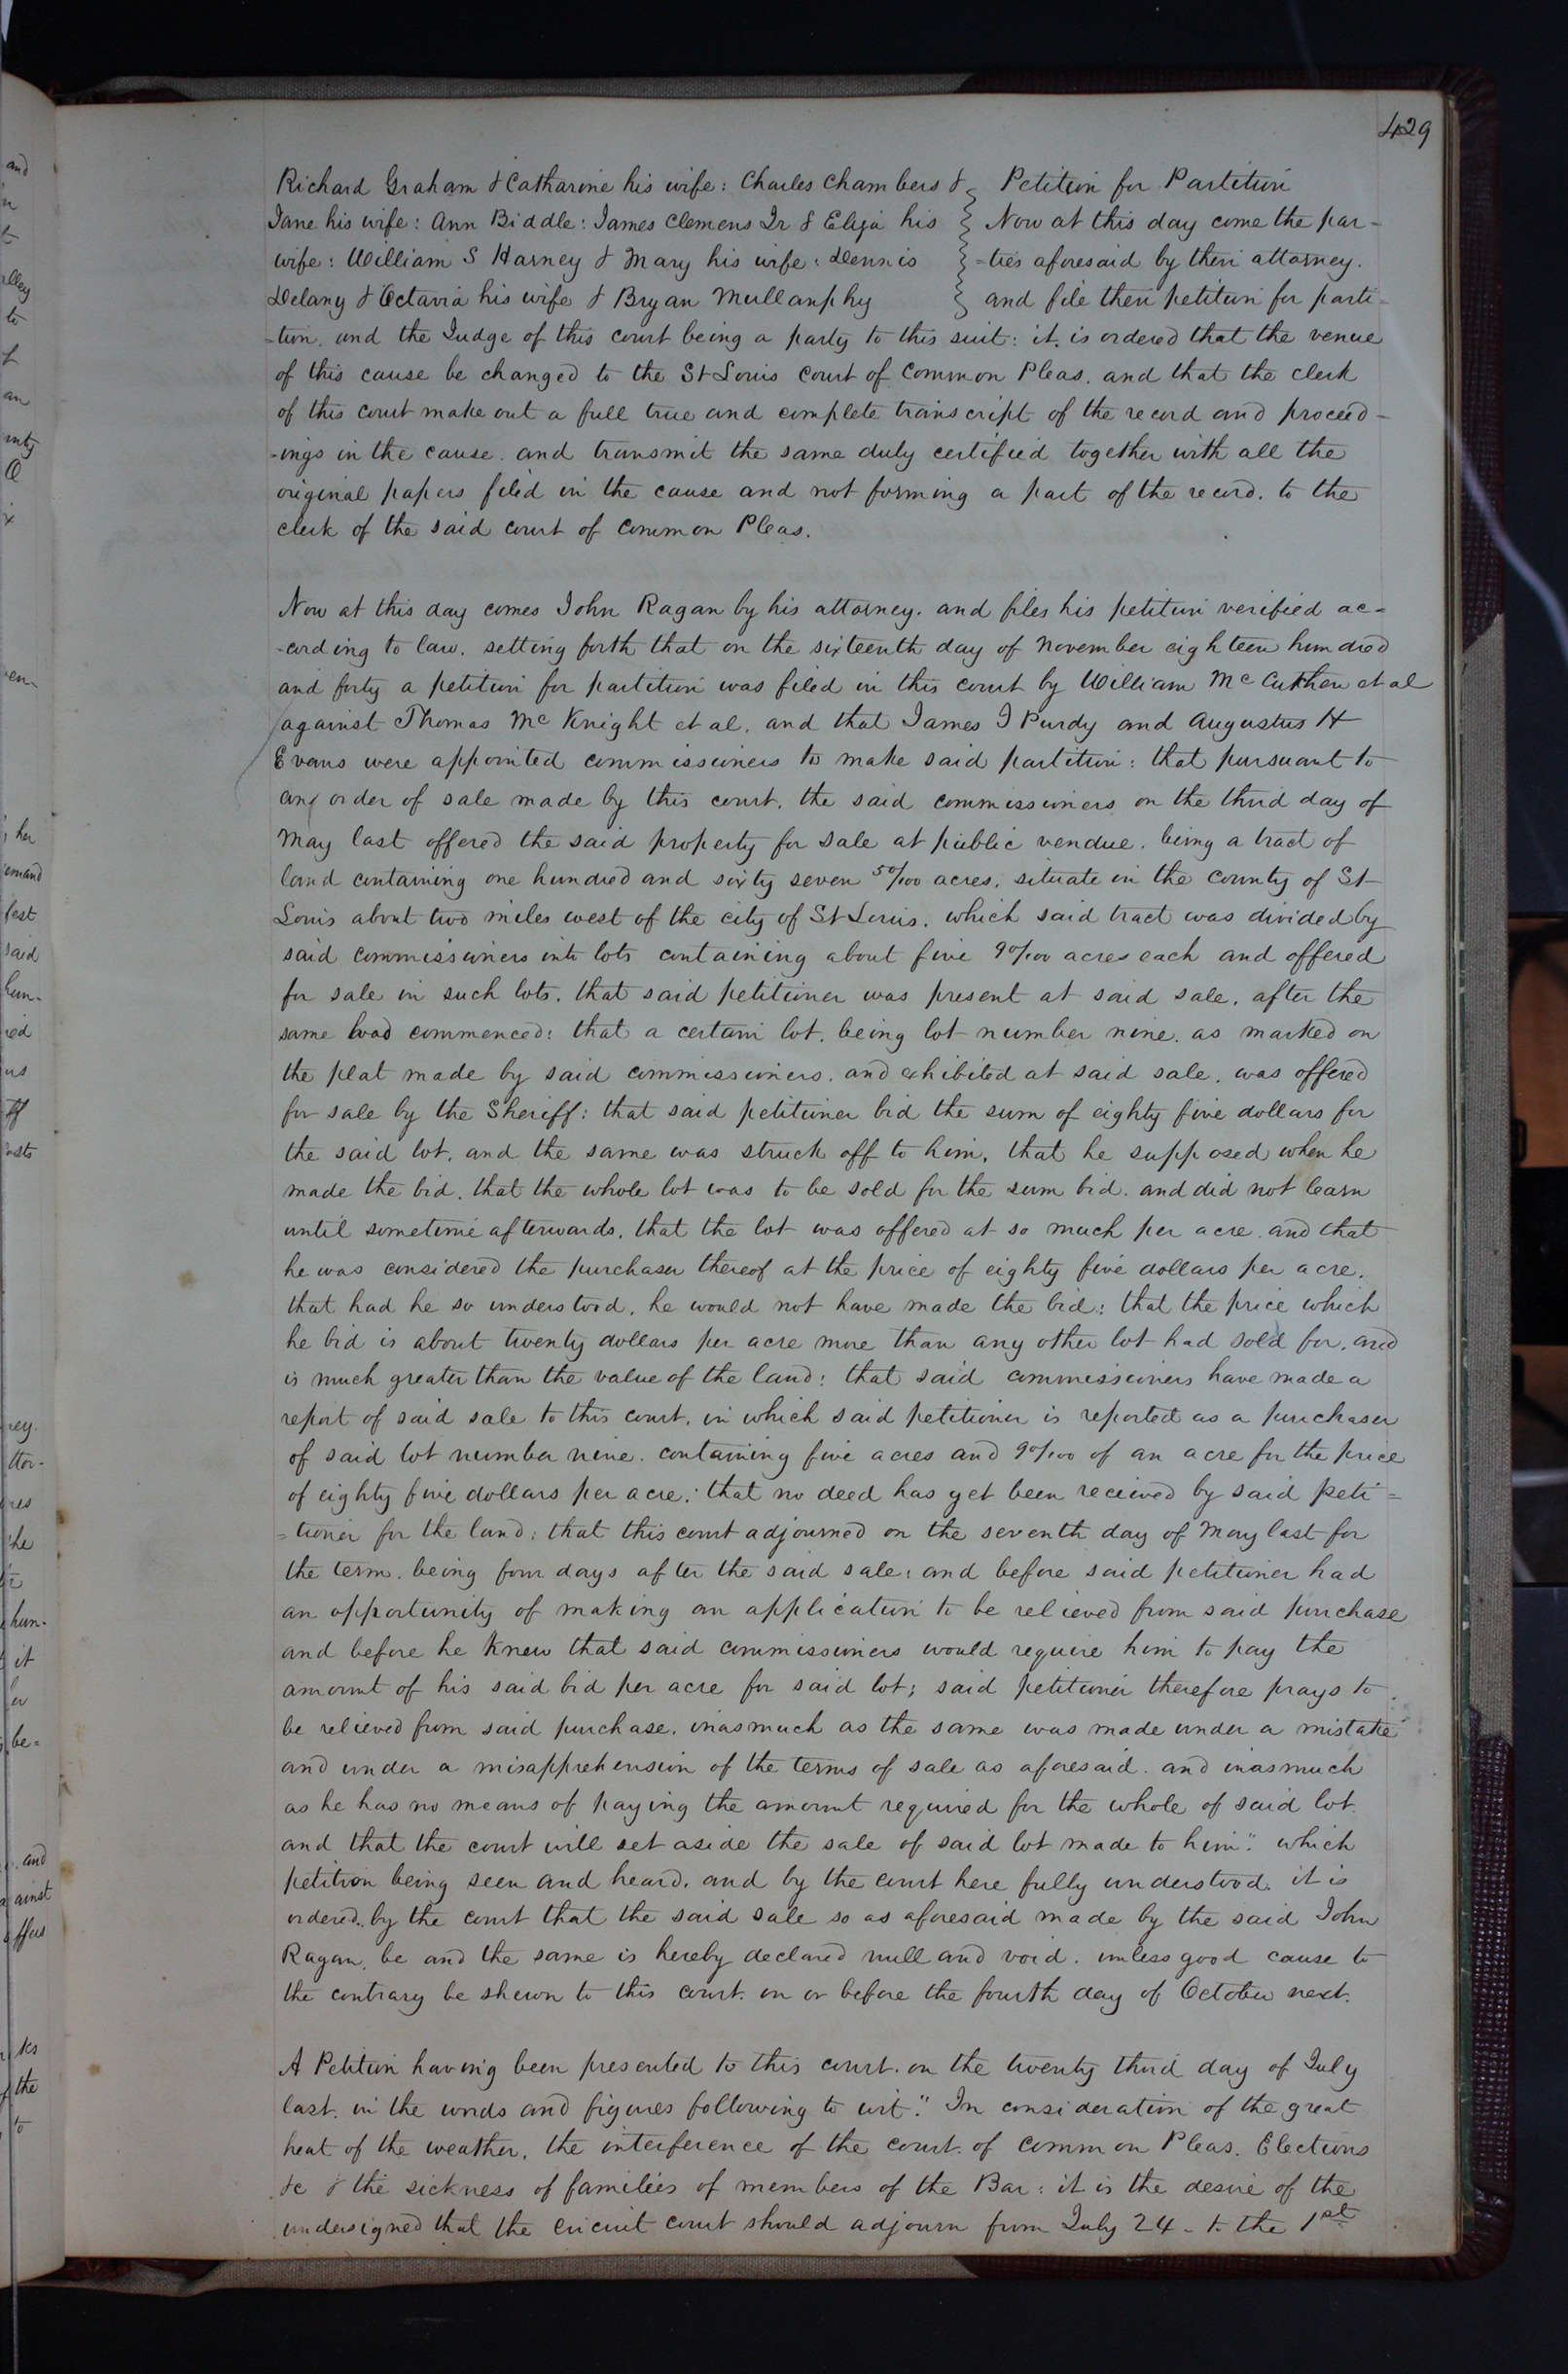 429
Richard Graham & Catharine his wife : Charles Chambers & Petition for Partition
Jane his wife : Ann Biddle : James Clemens Jr & Eliza his Now at this day come the par-
wife : William S Harney & Mary his wife : Dennis -ties aforesaid by their attorney.
Delany & Octavia his wife & Bryan Mullanphy and file their petition for parti-
-tion. and the Judge of this court being a party to this suit : it is ordered that the venue
of this cause be changed to the St Louis Court of Common Pleas. and that the clerk
of this court make out a full true and complete transcript of the record and proceed-
-ings in the cause. and transmit the same duly certified together with all the
original papers filed in the cause and not forming a part of the record. to the
clerk of the said court of Common Pleas.
Now at this day comes John Ragan by his attorney. and files his petition verified ac-
-cording to law. setting forth that on the sixteenth day of November eighteen hundred
and forty a petition for partition was filed in this court by William McCutchen et al
against Thomas McKnight et al. and that James J Purdy and Augustus H
Evans were appointed commissioners to make said partition : that pursuant to
any order of sale made by this court. the said commissioners on the third day of
May last offered the said property for sale at public vendue. being a tract of
land containing one hundred and sixty seven 50/100 acres. situate in the county of St
Louis about two miles west of the city of St Louis. which said tract was divided by
said commissioners into lots containing about five 90/100 acres each and offered
for sale in such lots. that said petitioner was present at said sale. after the
same had commenced : that a certain lot. being lot number nine. as marked on
the plat made by said commissioners. and exhibited at said sale. was offered
for sale by the Sheriff : that said petitioner bid the sum of eighty five dollars for
the said lot. and the same was struck off to him. that he supposed when he
made the bid. that the whole lot was to be sold for the sum bid. and did not learn
until sometime afterwards. that the lot was offered at so much per acre. and that
he was considered the purchaser thereof at the price of eighty five dollars per acre.
that had he so understood. he would not have made the bid : that the price which
he bid is about twenty dollars per acre more than any other lot had sold for. and
is much greater than the value of the land : that said commissioners have made a
report of said sale to this court. in which said petitioner is reported as a purchaser
of said lot number nine. containing five acres and 90/100 of an acre for the price
of eighty five dollars per acre : that no deed has yet been received by said peti=
=tioner for the land : that this court adjourned on the seventh day of May last for
the term. being four days after the said sale : and before said petitioner had
an opportunity of making an application to be relieved from said purchase
and before he knew that said commissioners would require him to pay the
amount of his said bid per acre for said lot; said petitioner therefore prays to
be relieved from said purchase. inasmuch as the same was made under a mistake
and under a misapprehension of the terms of sale as aforesaid. and inasmuch
as he has no means of paying the amount required for the whole of said lot.
and that the court will set aside the sale of said lot made to him". which
petition being seen and heard. and by the court here fully understood. it is
ordered. by the court that the said sale so as aforesaid made by the said John
Ragan. be and the same is hereby declared null and void. unless good cause to
the contrary be shewn to this court. on or before the fourth day of October next.
A Petition having been presented to this court. on the twenty third day of July
last. in the words and figures following to wit." In consideration of the great
heat of the weather. the interference of the court of common Pleas. Elections
&c & the sickness of families of members of the Bar : it is the desire of the
undersigned that the circuit court should adjourn from July 24 - to the 1st